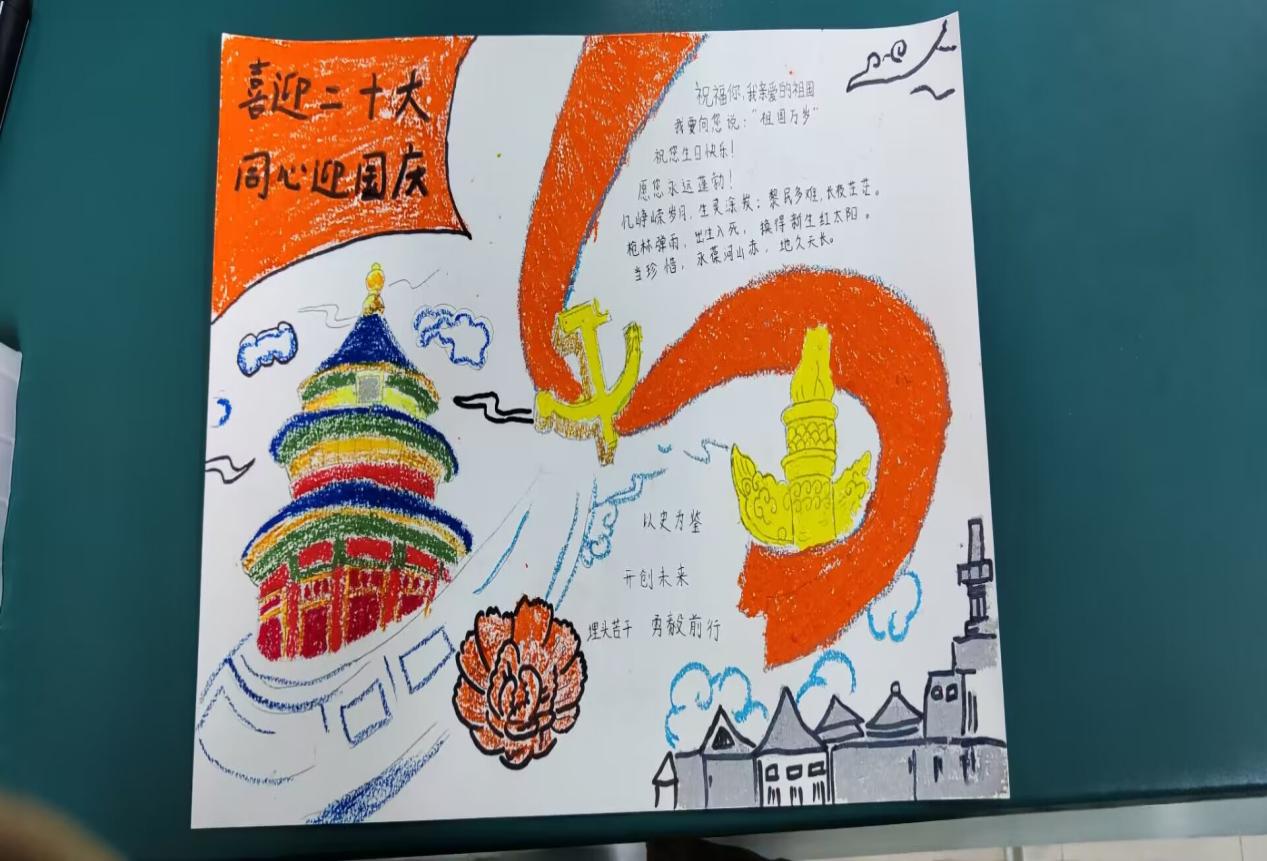 喜迎二十大
同心迎国庆
祝福你,我亲爱的祖国
我要向您说:"祖国万岁"
祝您生日快乐!
愿您永远蓬勃!
忆峥嵘岁月,生灵涂炭;黎民多难,长夜茫茫。
枪林弹雨,出生入死,换得新生红太阳。
当珍惜,永葆河山赤,地久天长。
以史为鉴
开创未来
埋头苦干 勇毅前行